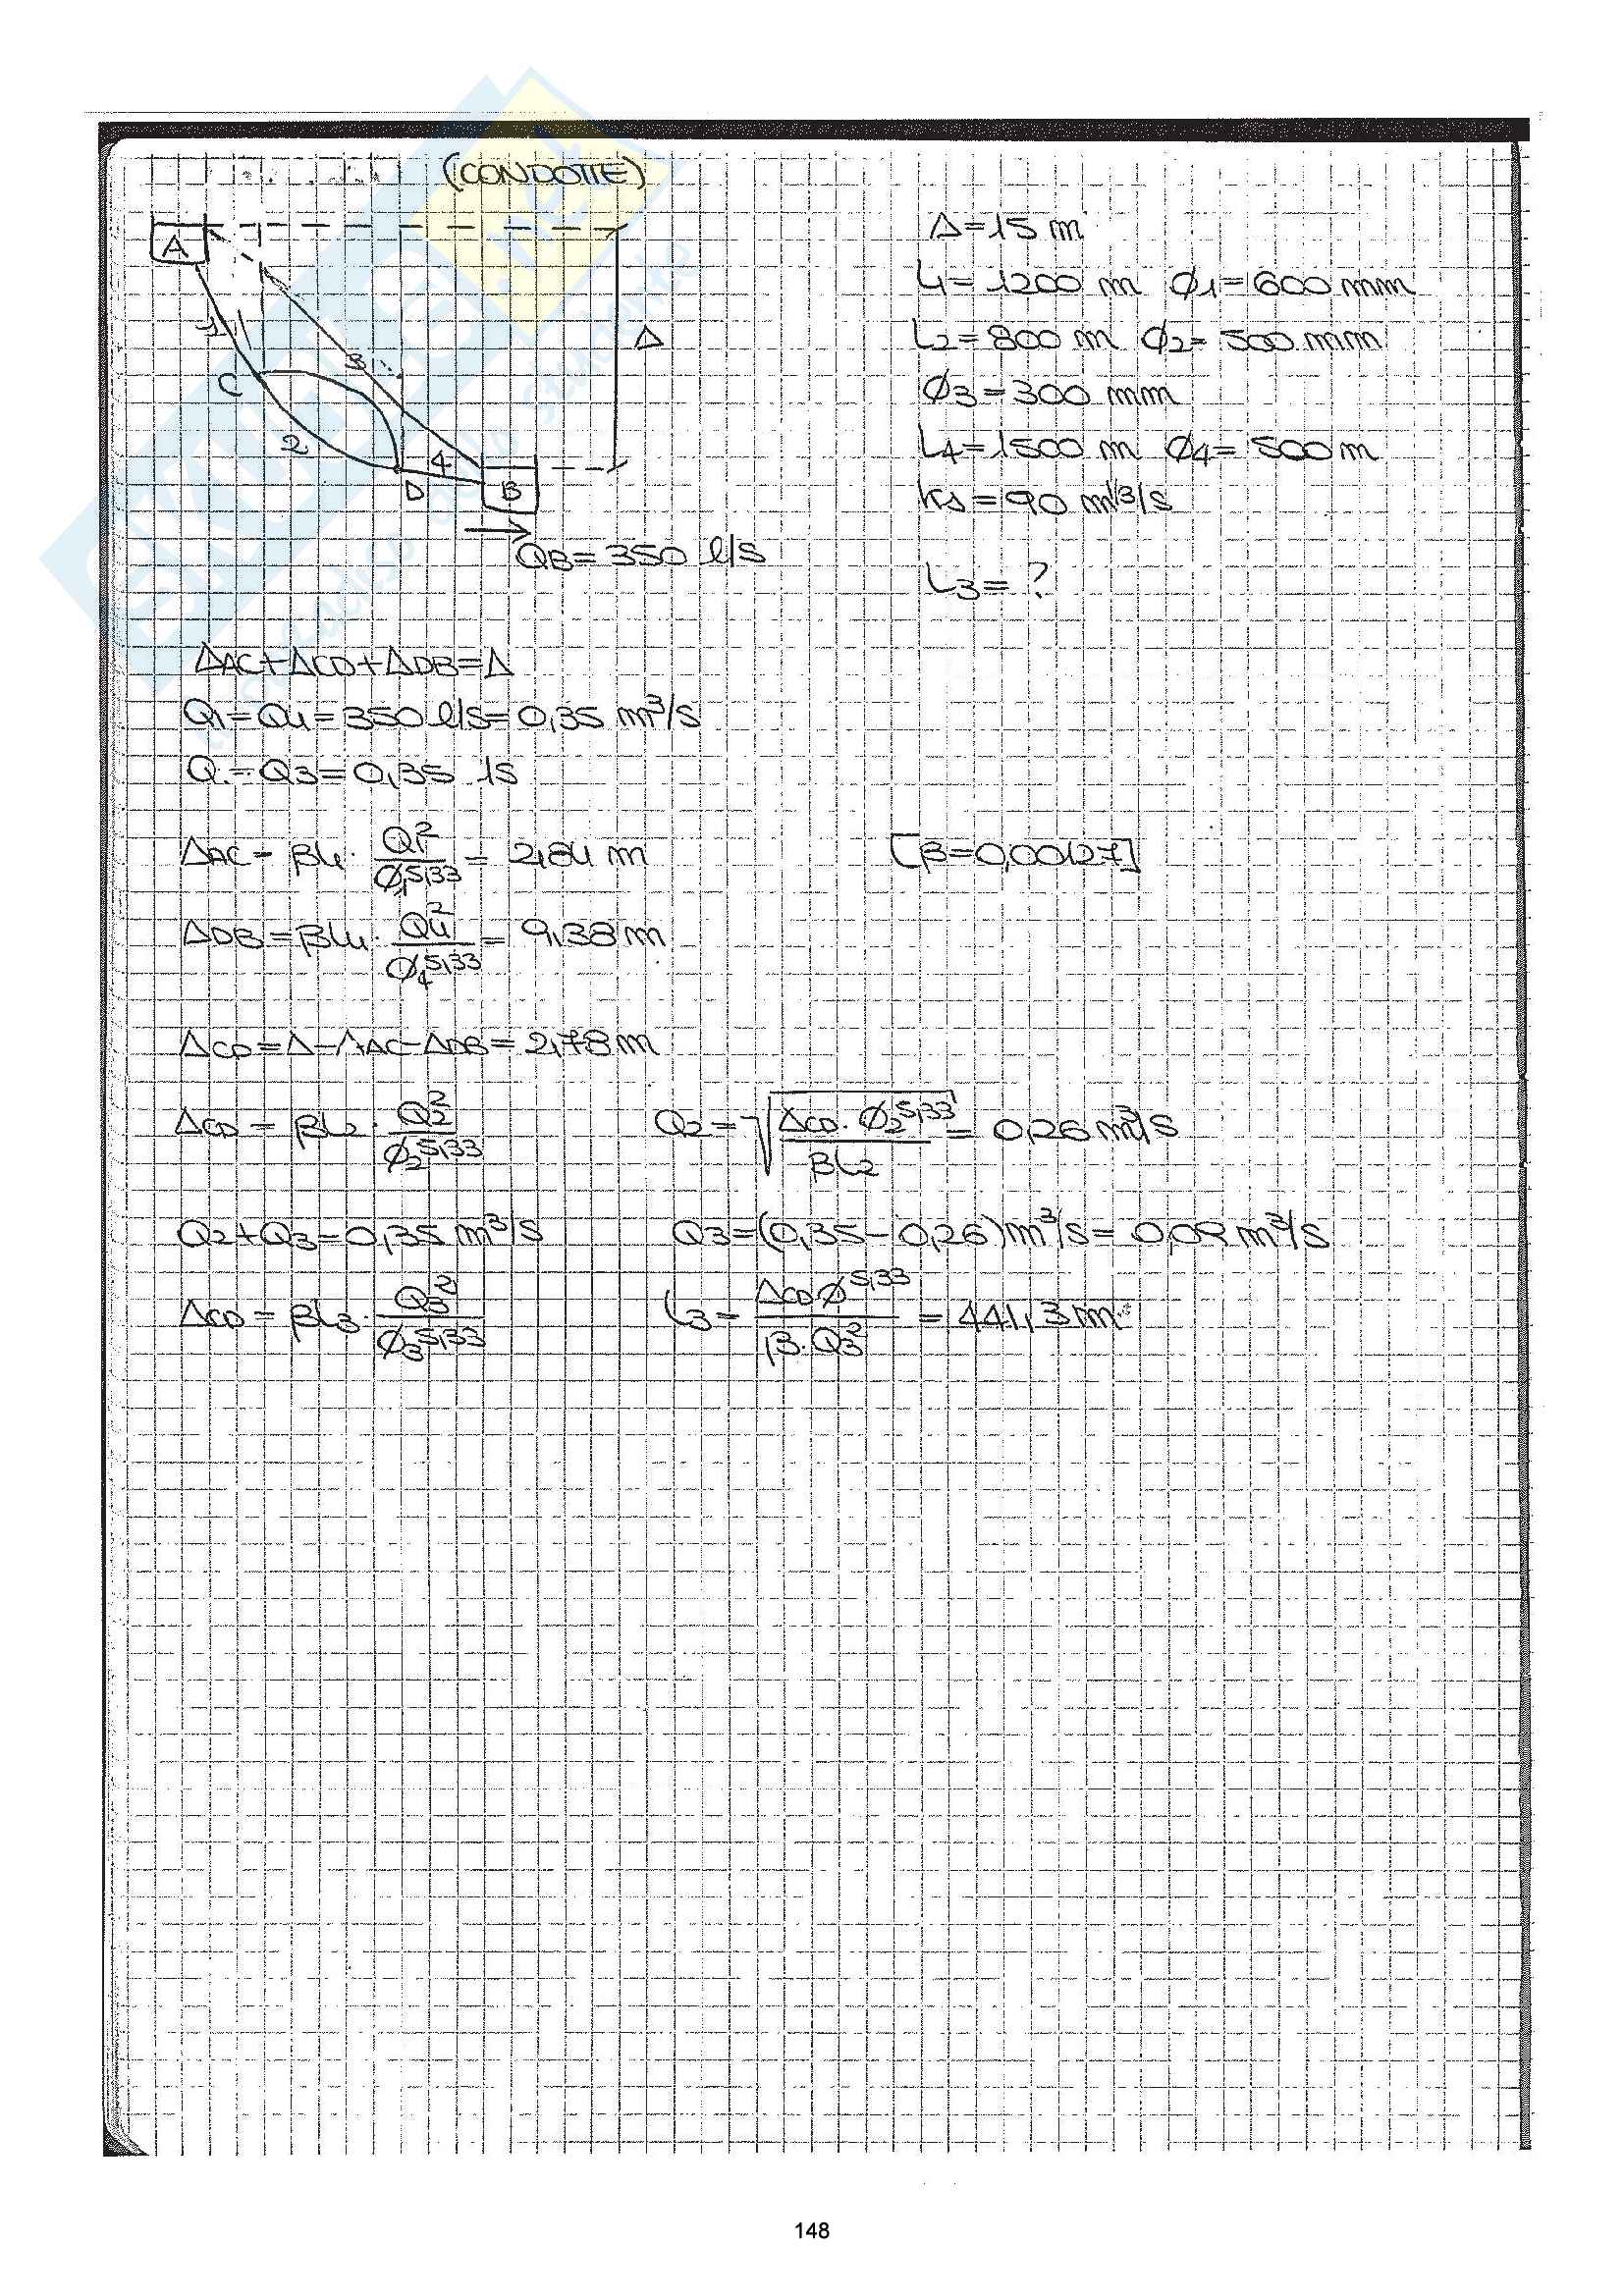 (CONDOTTE)
A
1
C
2
3
4
D
B
Δ
QB = 350 l/s
Δ = 15 m
L1 = 1200 m Ø1 = 600 mm
L2 = 800 m Ø2 = 500 mm
Ø3 = 300 mm
L4 = 1500 m Ø4 = 500 m
ks = 90 m^1/3/s
L3 = ?
ΔAC + ΔCD + ΔDB = Δ
Q1 = Q4 = 350 l/s = 0,35 m³/s
Q - Q3 = 0,35 ls
ΔAC = βL1 · Q1²/Ø1^5,33 = 2,84 m [β = 0,00127]
ΔDB = βL4 · Q4²/Ø4^5,33 = 9,38 m
ΔCD = Δ - ΔAC - ΔDB = 2,78 m
ΔCD = βL2 · Q2²/Ø2^5,33 Q2 = √(ΔCD · Ø2^5,33/βL2) = 0,26 m³/s
Q2 + Q3 = 0,35 m³/s Q3 = (0,35 - 0,26) m³/s = 0,09 m³/s
ΔCD = βL3 · Q3²/Ø3^5,33 L3 = ΔCD Ø^5,33/β · Q3² = 441,3 m
148